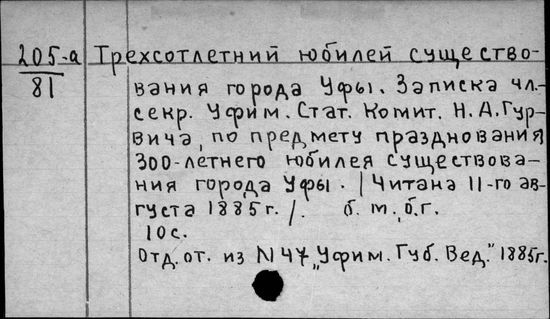 205-а Трехсотлетний юбилей существо-
81
вания города Уфы. Записка чл.-
секр. Уфим. Стат. Комит. Н.А.Гур-
вича, по предмету празднования
300-летнего юбилея существова-
ния города Уфы. /Читана 11-го ав-
густа 1885 г./. б.м., б.г.
10 с.
Отд. от. из N 47 „Уфим. Губ. Вед." 1885г.